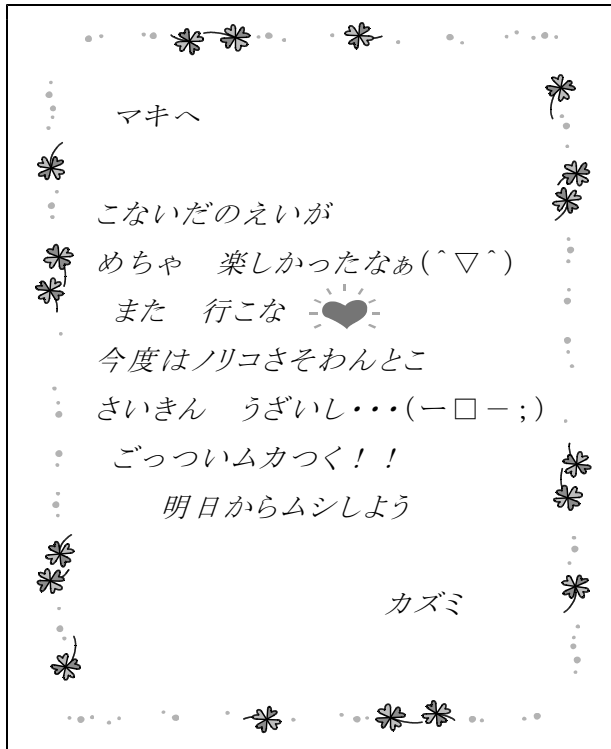 マキへ
こないだのえいが
めちゃ　楽しかったなぁ(＾▽＾)
また　行こな
今度はノリコさそわんとこ
さいきん　うざいし・・・(ー□－;)
ごっついムカつく！！
明日からムシしよう
カズミ